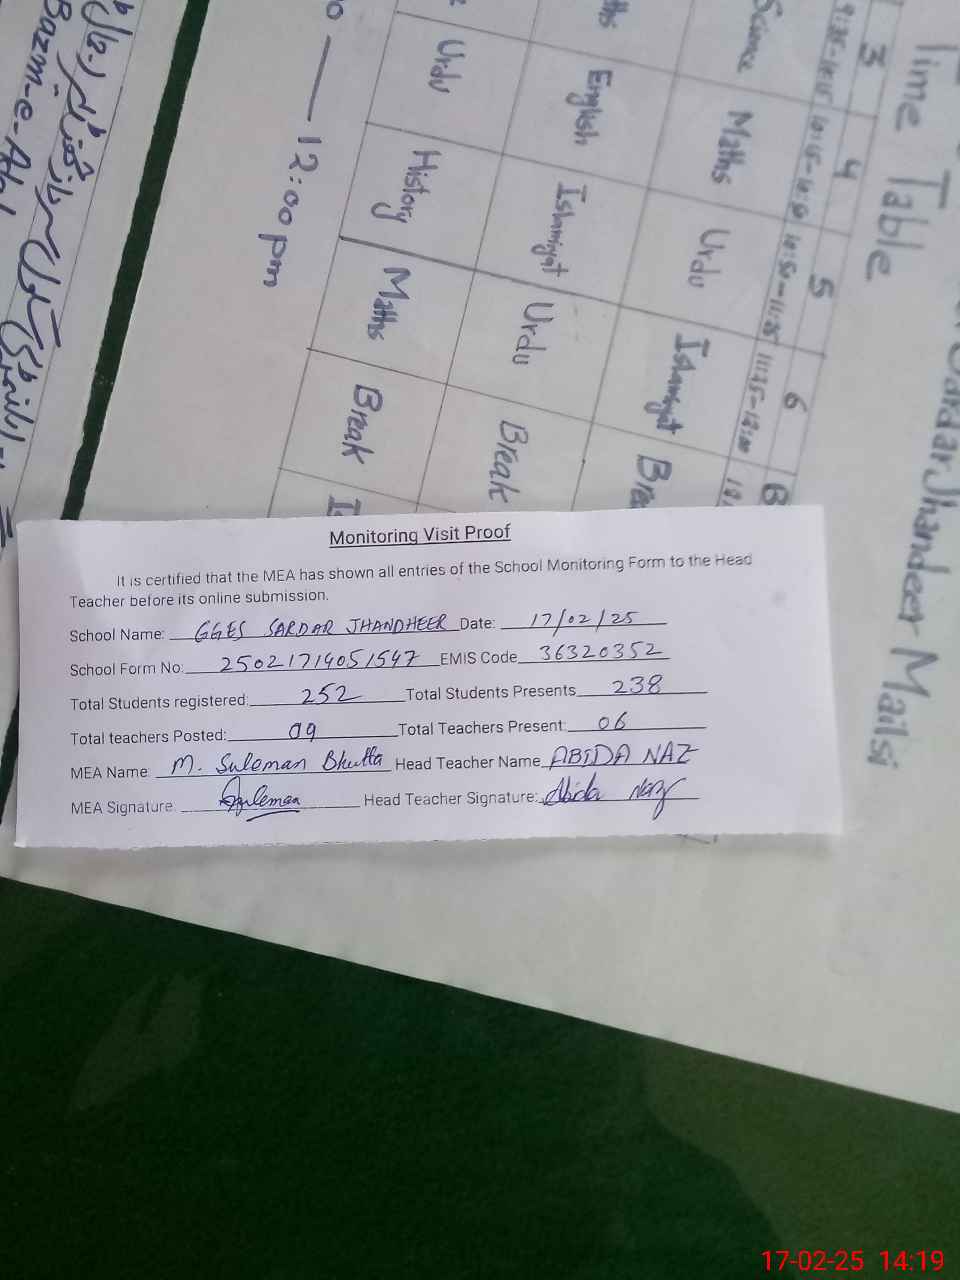 Monitoring Visit Proof
It is certified that the MEA has shown all entries of the School Monitoring Form to the Head
Teacher before its online submission.
School Name: GGES SARDAR JHANDHEER Date: 17/02/25
School Form No: 25021714051547 EMIS Code 36320352
Total Students registered: 252 Total Students Presents 238
Total teachers Posted: 09 Total Teachers Present: 06
MEA Name: M. Suleman Bhutta Head Teacher Name ABIDA NAZ
MEA Signature Suleman Head Teacher Signature: Abida Naz
Sardar Jhandeer Mailsi
Time Table
3 4 5 6 B
Science Maths Urdu Islamiyat Bre
English Islamiyat Urdu Break
Urdu History Maths Break
12:00pm
Bazm-e-
17-02-25 14:19